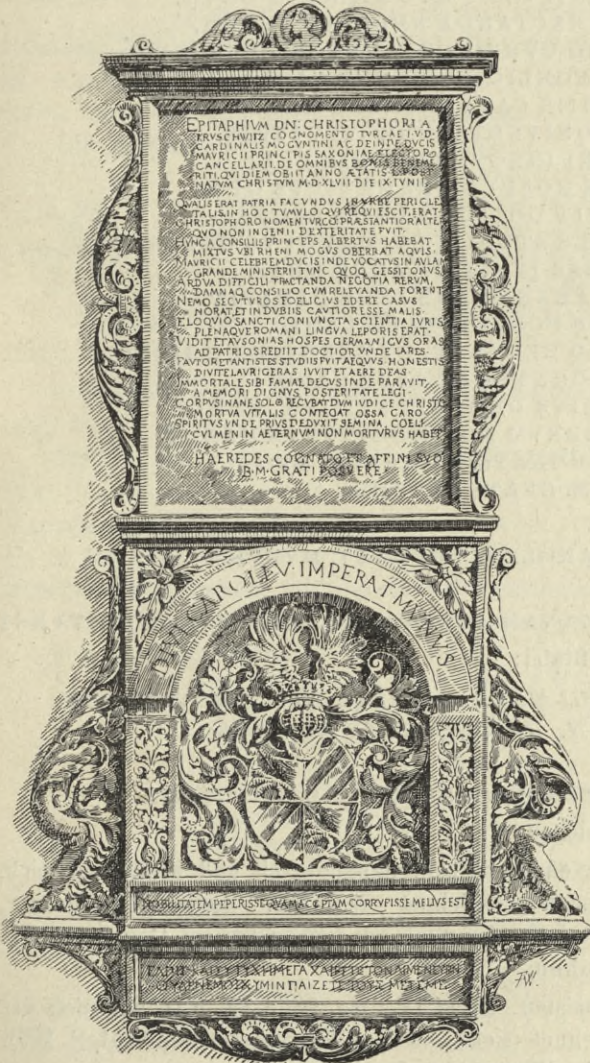 EPITAPHIVM DN: CHRISTOPHORI A
CARDINALIS MOGVNTINI AC DEINDE DVCIS
MAVRICII PRINCIPIS SAXONIAE ELECTOR
CANCELLARII. DE OMNIBVS BONIS BENEME
RITI, QVI DIEM OBIIT ANNO ÆTATIS POST
NATVM CHRISTVM M·D·XLVII DIE IX IVNII
QVALIS ERAT PATRIA FACVNDVS IN VRBE PERICLE
TALIS IN HOC TVMVLO QVI REQVIESCIT, ERAT
CHRISTOPHORO NOMEN TVRCO: PRÆSTANTIOR ALTE
QVO NON INGENII DEXTERITATE FVIT·
HVNC A CONSILIIS PRINCEPS ALBERTVS HABEBAT
MIXTVS VBI RHENI MOGVS OBERRAT AQVIS·
MAVRICII CELEBREM DVCIS INDE VOCATVS IN AVLAM
GRANDE MINISTERII TVNC QVOQ GESSIT ONVS
ARDVA DIFFICILI TRACTANDA NEGOTIA RERVM,
DAMNAQ CONSILIO CVM RELEVANDA FORENT
NEMO SECVTVROS FOELICIVS EDERE CASVS
NORAT, ET IN DVBIIS CAVTIOR ESSE MALIS·
ELOQVIO SANCTI CONIVNCTA SCIENTIA IVRIS
PLENAQVE ROMANI LINGVA LEPORIS ERAT·
VIDIT ET AVSONIAS HOSPES GERMANICVS ORAS
AD PATRIOS REDIIT DOCTIOR VNDE LARES·
FAVTOR ET ANTISTES STVDIIS FVIT AEQVVS HONESTIS
DIVITE LAVRIGERAS IVVIT ET AERE DEAS
IMMORTALE SIBI FAMAE DECVS INDE PARAVIT
A MEMORI DIGNVS POSTERITATE LEGI·
CORPVS INANE SOLO RECVBAT DVM IVDICE CHRISTO
MORTVA VITALIS CONTEGAT OSSA CARO
SPIRITVS VNDE PRIVS DEDVXIT SEMINA, COELI
CVLMEN IN AETERNVM NON MORITVRVS HABET
HAEREDES COGNATO ET AFFINI SVO
B·M·GRATI POSVERE·
DIVI CAROLI V·IMPERAT MVNVS
NOBILITATEM PEPERISSE QVAM ACCEPTAM CORRVPISSE MELIVS EST
FW.